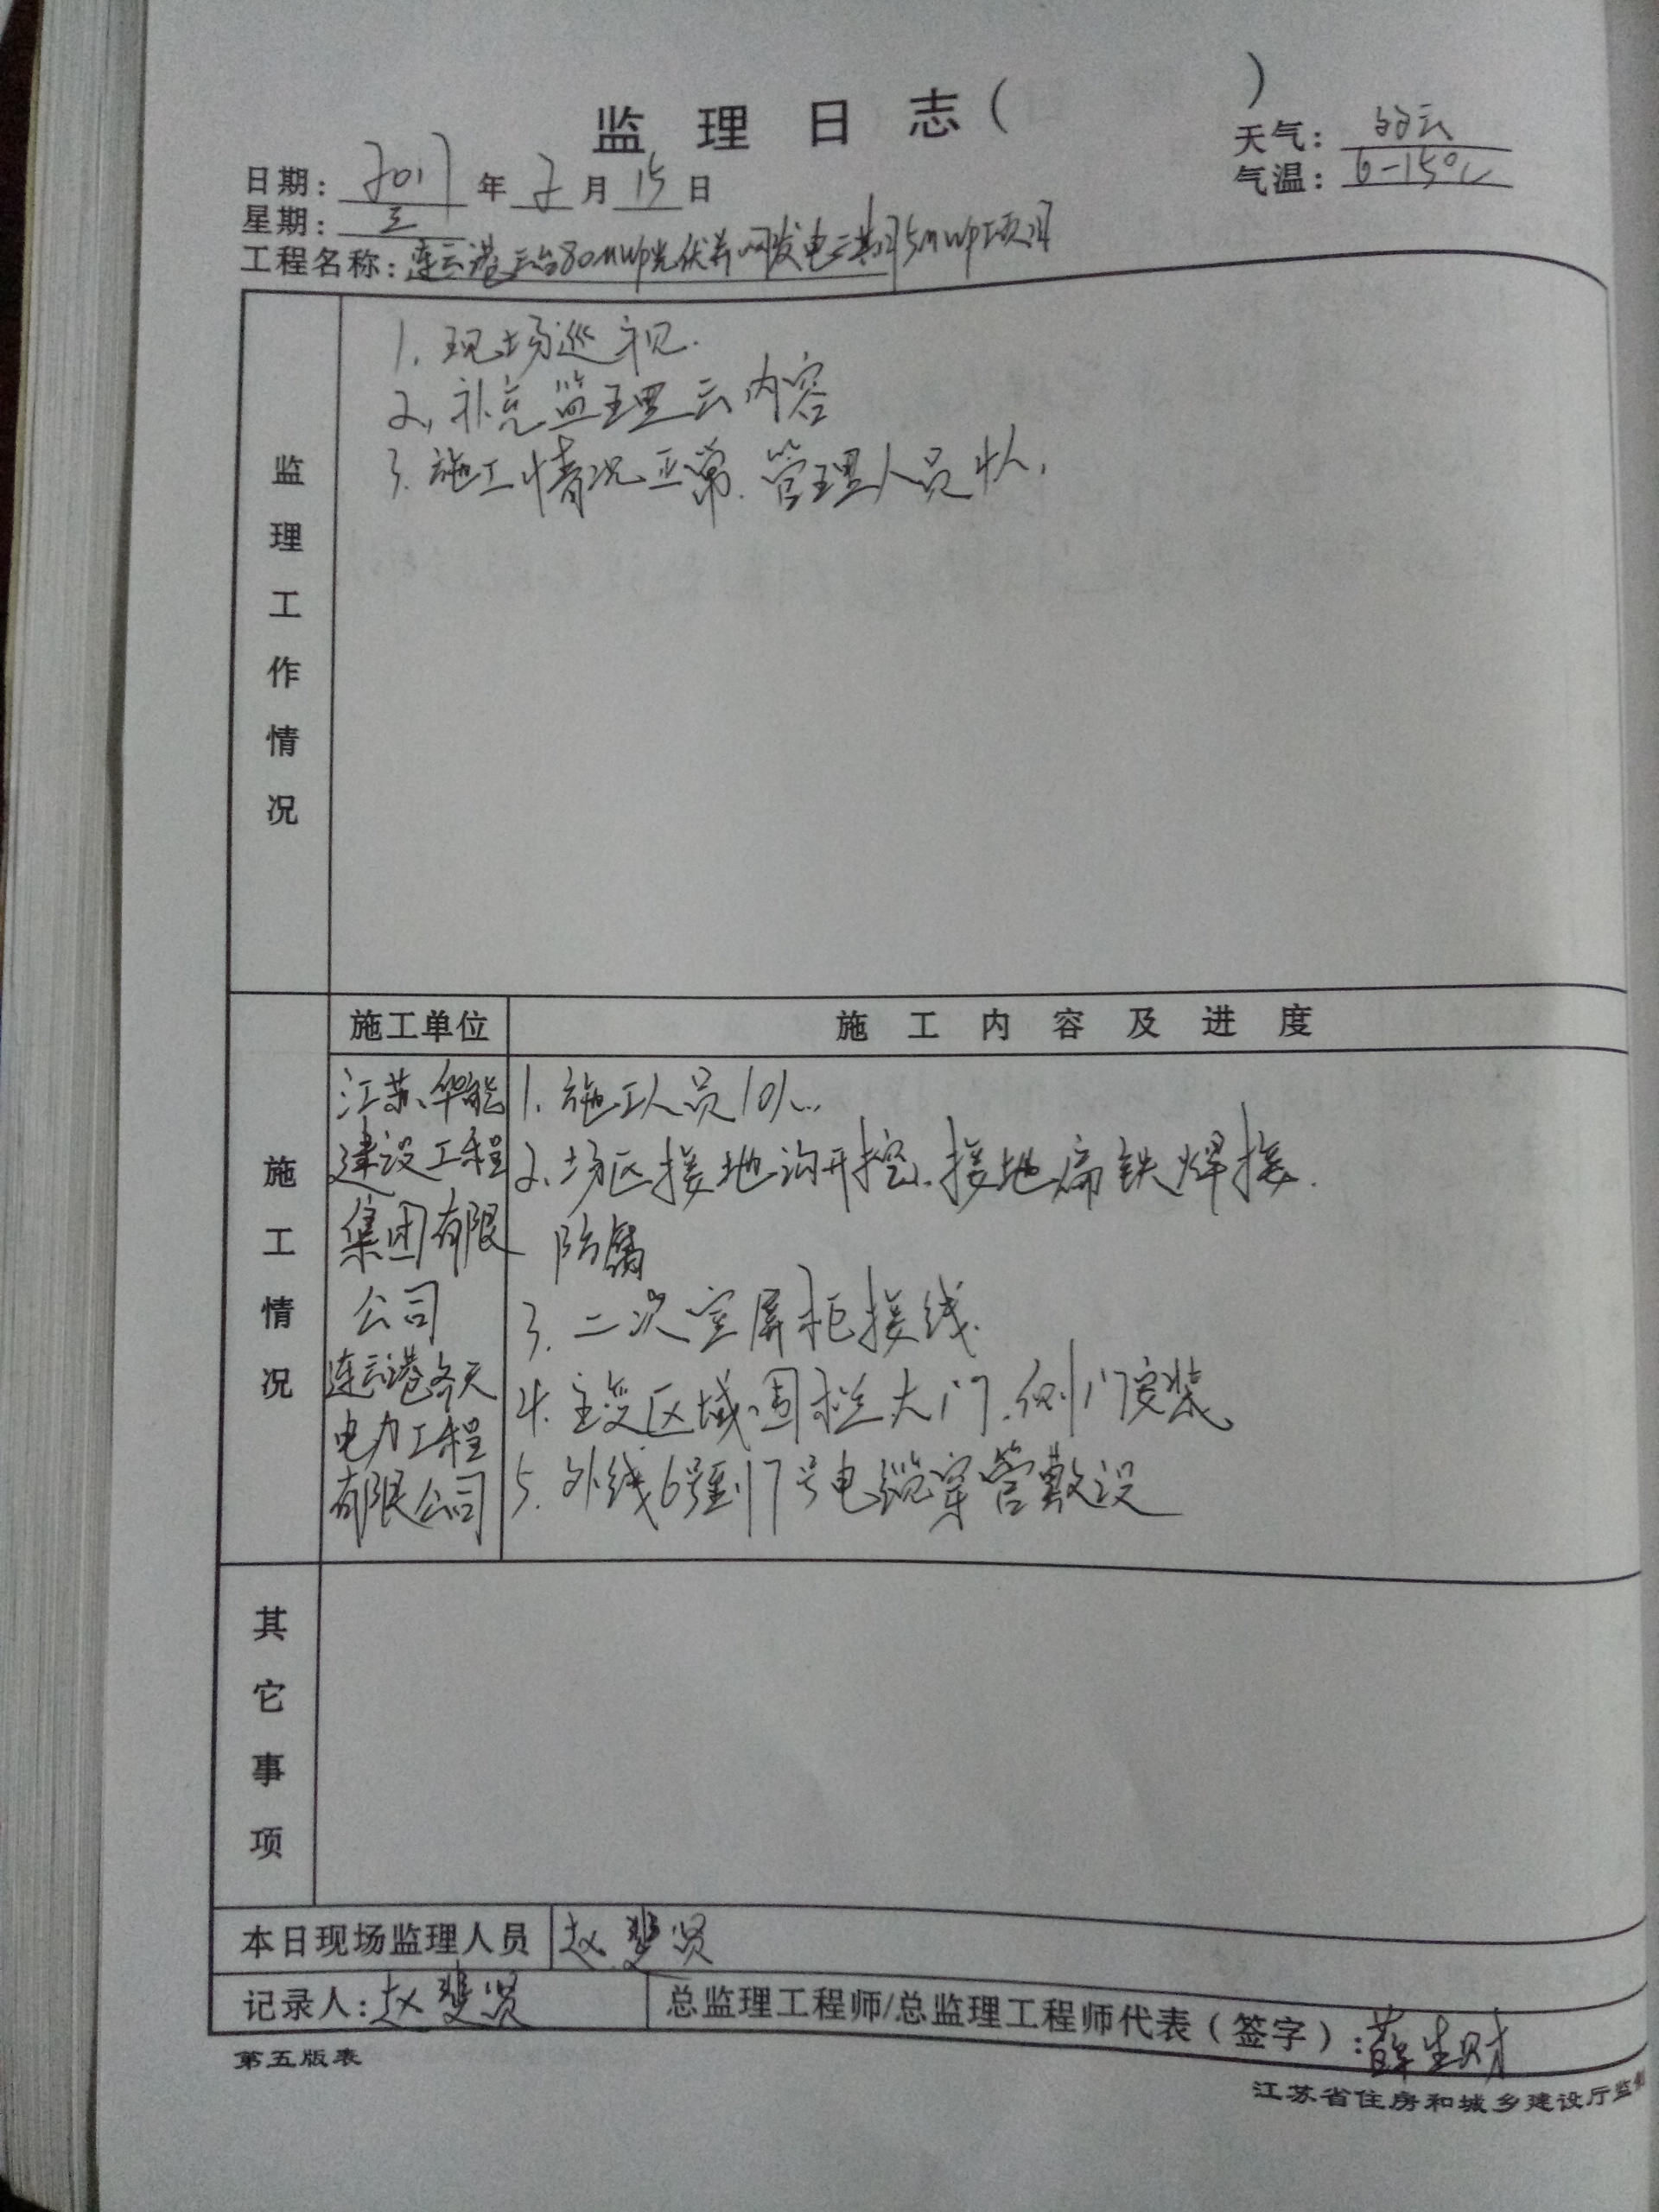 监理日志(　　　)
天气：多云
日期：2017年2月15日
气温：6-15℃
星期：三
工程名称：连云港云台80MWp光伏并网发电二期15MWp项目
监理工作情况
1.现场巡视.
2、补充监理云内容
3.施工情况正常.管理人员4人,
施工单位
施工内容及进度
施工情况
江苏华能
建设工程
集团有限
公司
连云港
电力工程
有限公司
1.施工人员10人.
2、场区接地沟开挖、接地扁铁焊接.
防腐
3.二次室屏柜接线.
4.主变区域围栏大门.侧门安装
5.外线6号到7号电缆穿管敷设
其它事项
本日现场监理人员 赵斐贤
记录人：赵斐贤
总监理工程师/总监理工程师代表（签字）:薛生财
第五版表
江苏省住房和城乡建设厅监制